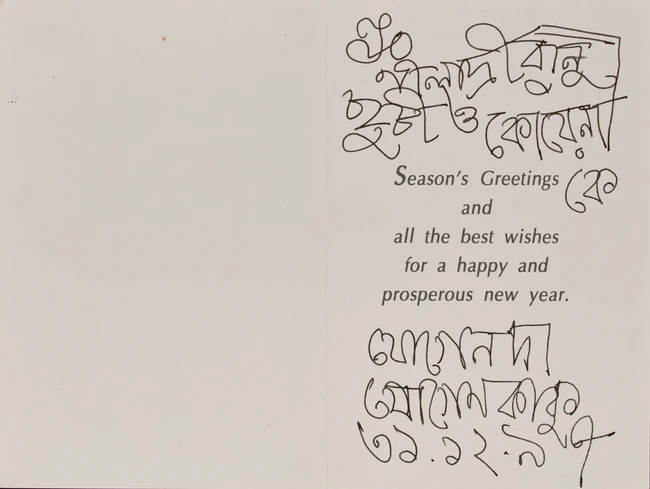 নীলাদ্রী রানু
ও কোয়েনা
কে
Season's Greetings
and
all the best wishes
for a happy and
prosperous new year.
যোগেন দা
যোগেন কাকু
৩১.১২.৯৭